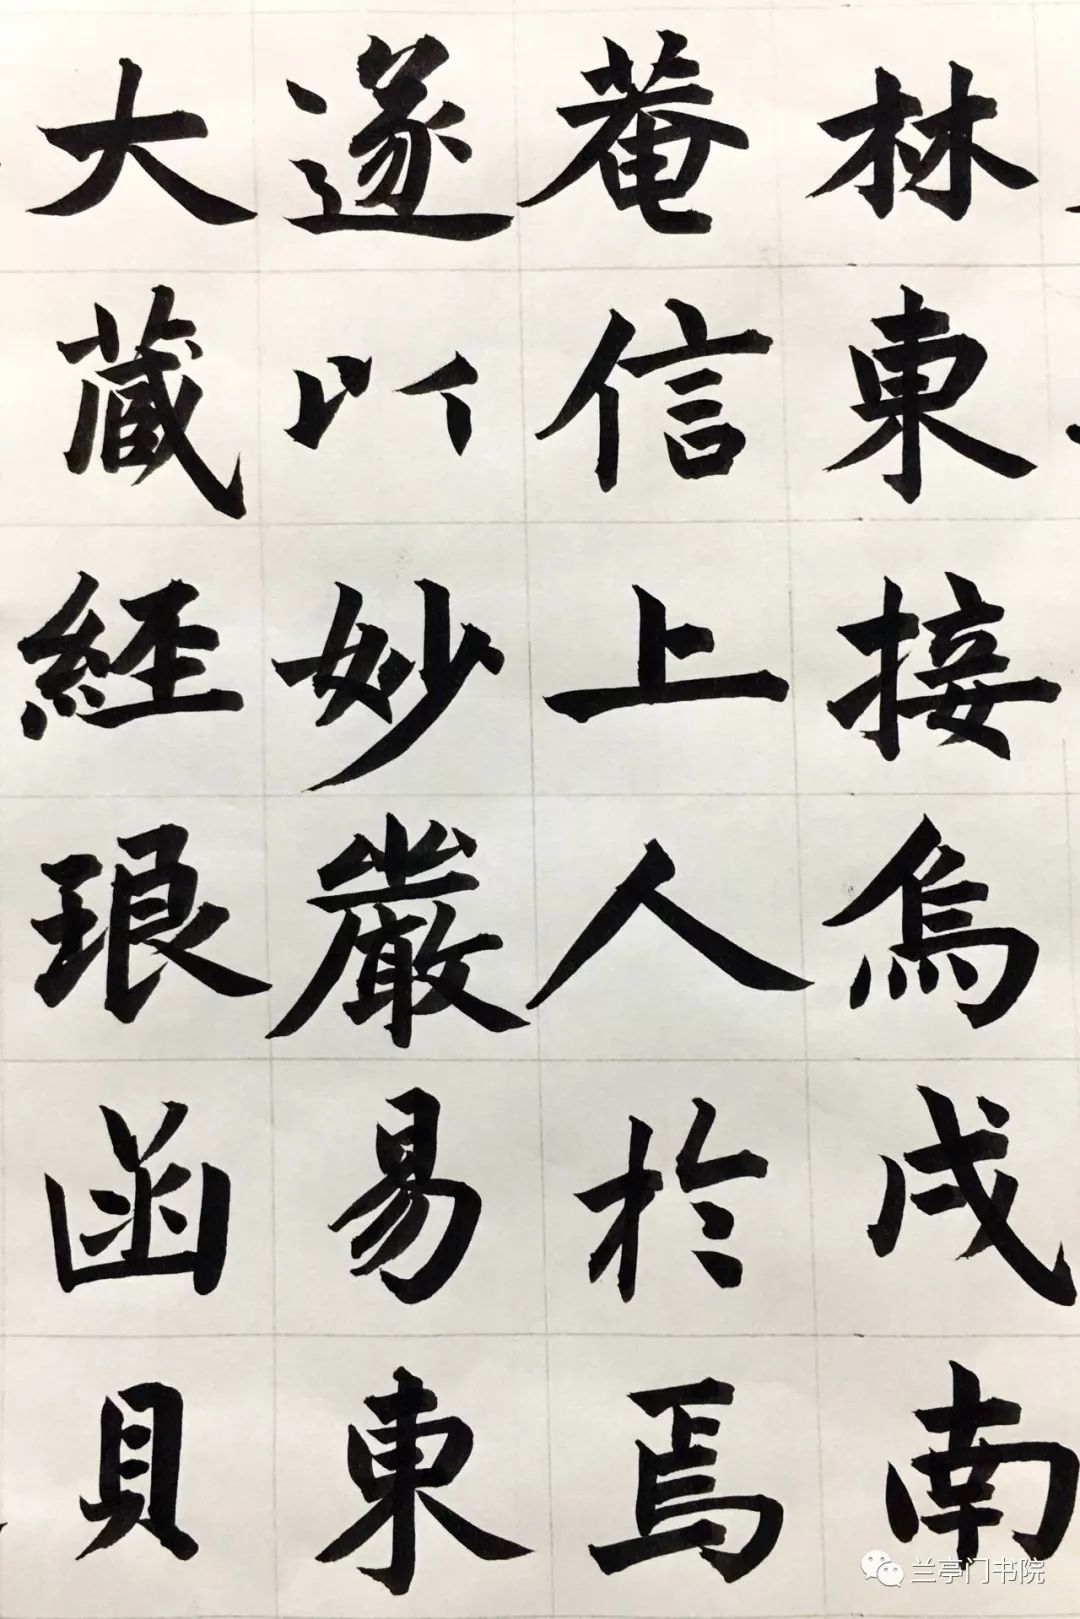 林東接烏戍南
菴信上人於焉
遂以妙嚴易東
大藏經琅函貝
兰亭门书院